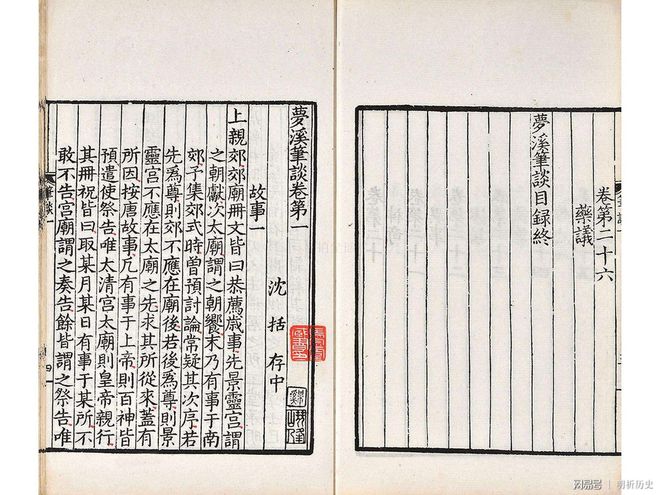 卷第二十六
藥議
夢溪筆談目録終
夢溪筆談卷第一
沈括存中
故事一
上親郊郊廟冊文皆曰恭薦歲事先景靈宮謂
之朝獻次太廟謂之朝饗末乃有事于南
郊予集郊式時曾預討論常疑其次序若
先爲尊則郊不應在廟後若後爲尊則景
靈宮不應在太廟之先求其所從來蓋有
所因按唐故事凢有事于上帝則百神皆
預遣使祭告唯太清宮太廟則皇帝親行
其冊祝皆曰取某月某日有事于某所不
敢不告宮廟謂之奏告餘皆謂之祭告唯
筆談一
四
网易号